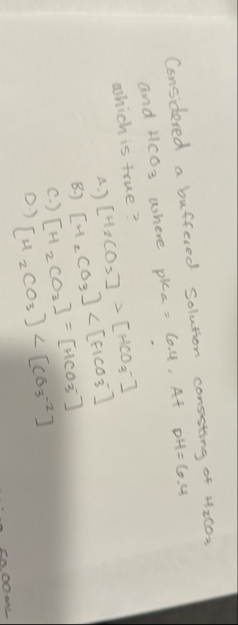 Considered a buffered solution consisting of H2CO3
and HCO3 where pKa = 6.4, At pH = 6.4
which is true?
A.) [H2CO3] > [HCO3-]
B.) [H2CO3] < [HCO3-]
C.) [H2CO3] = [HCO3-]
D.) [H2CO3] < [CO3-2]
50.00mL